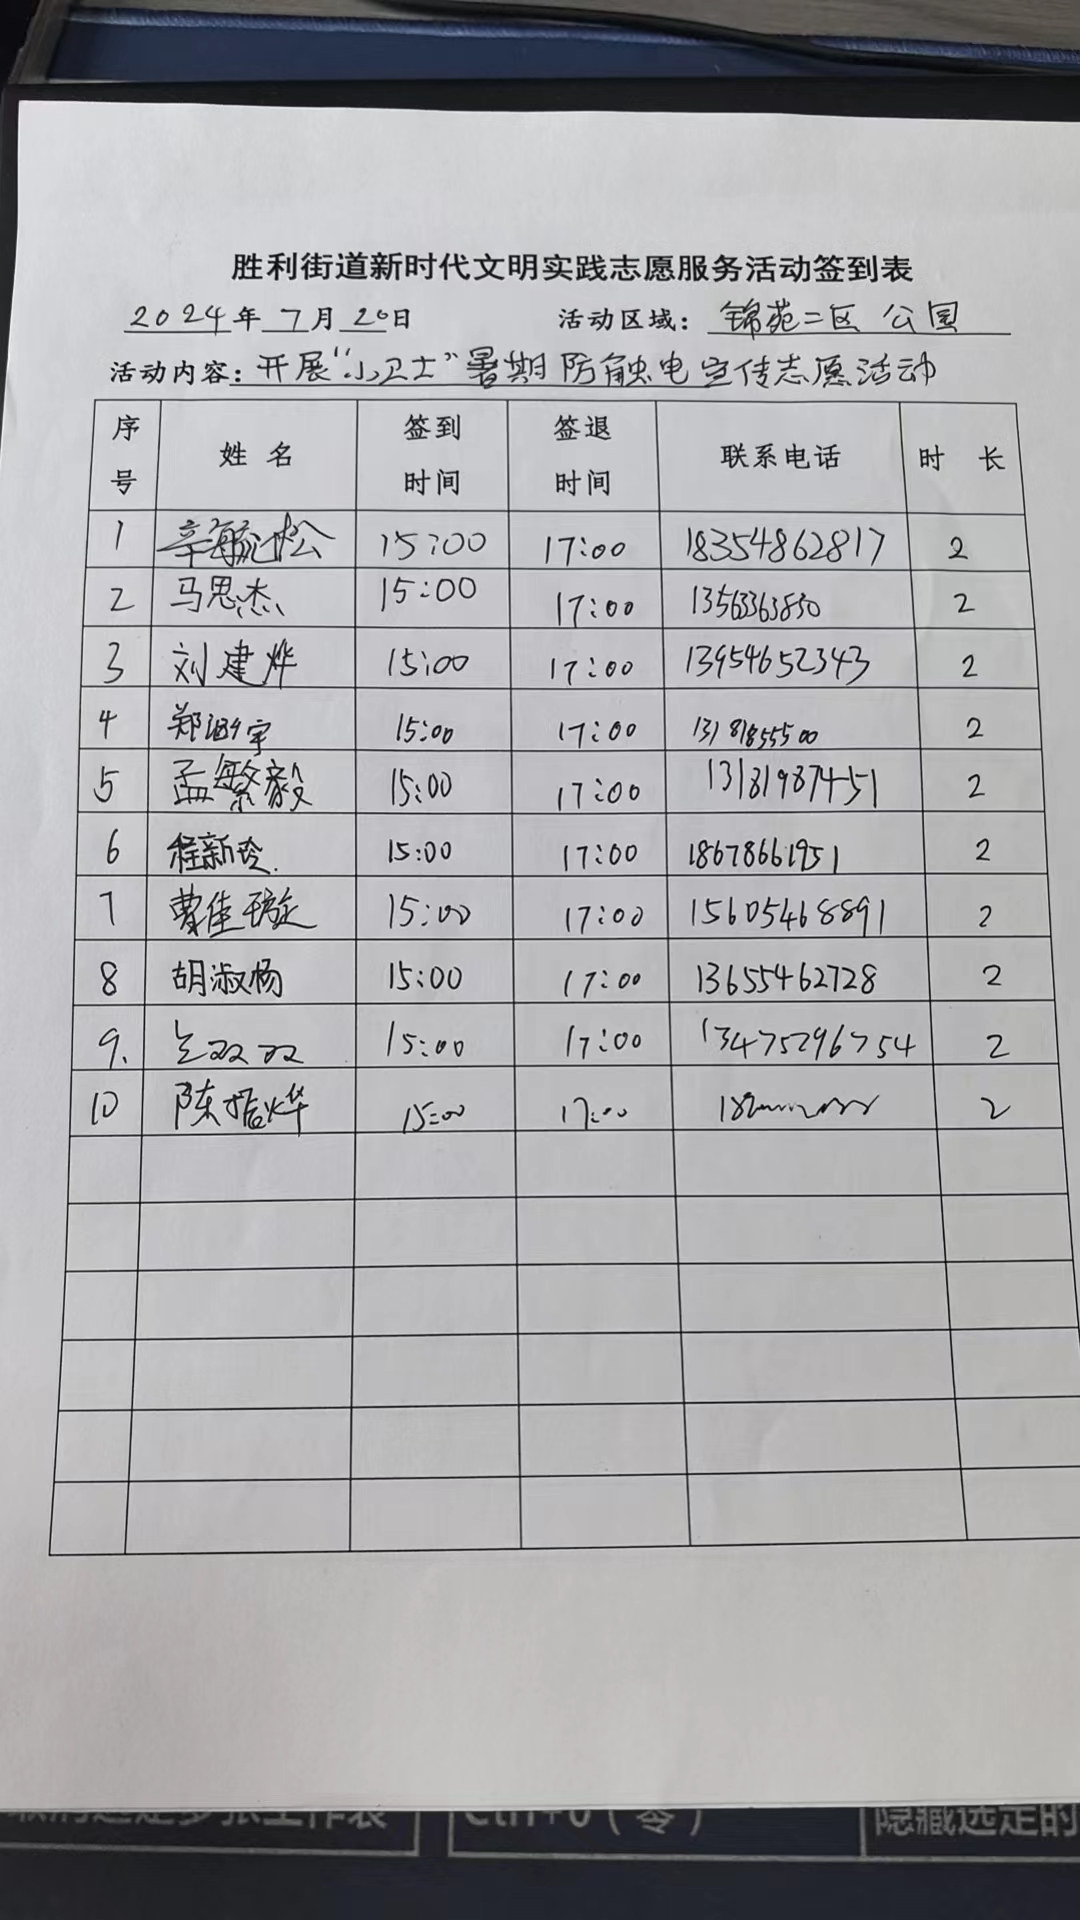 胜利街道新时代文明实践志愿服务活动签到表
2024年 7月 20日 活动区域：锦苑二区 公园
活动内容：开展“小卫士”暑期防触电宣传志愿活动
序号 姓名 签到时间 签退时间 联系电话 时长
1 辛毓松 15:00 17:00 18354862817 2
2 马思杰 15:00 17:00 13563363830 2
3 刘建烨 15:00 17:00 13954652343 2
4 郑 宇 15:00 17:00 13181855500 2
5 孟繁毅 15:00 17:00 13181987451 2
6 程新玲 15:00 17:00 18678661951 2
7 曹佳璇 15:00 17:00 15605468891 2
8 胡淑杨 15:00 17:00 13655462728 2
9. 双双 15:00 17:00 13475296754 2
10 陈 烨 15:00 17:00 2
Ctrl+0（零）
隐藏选定的